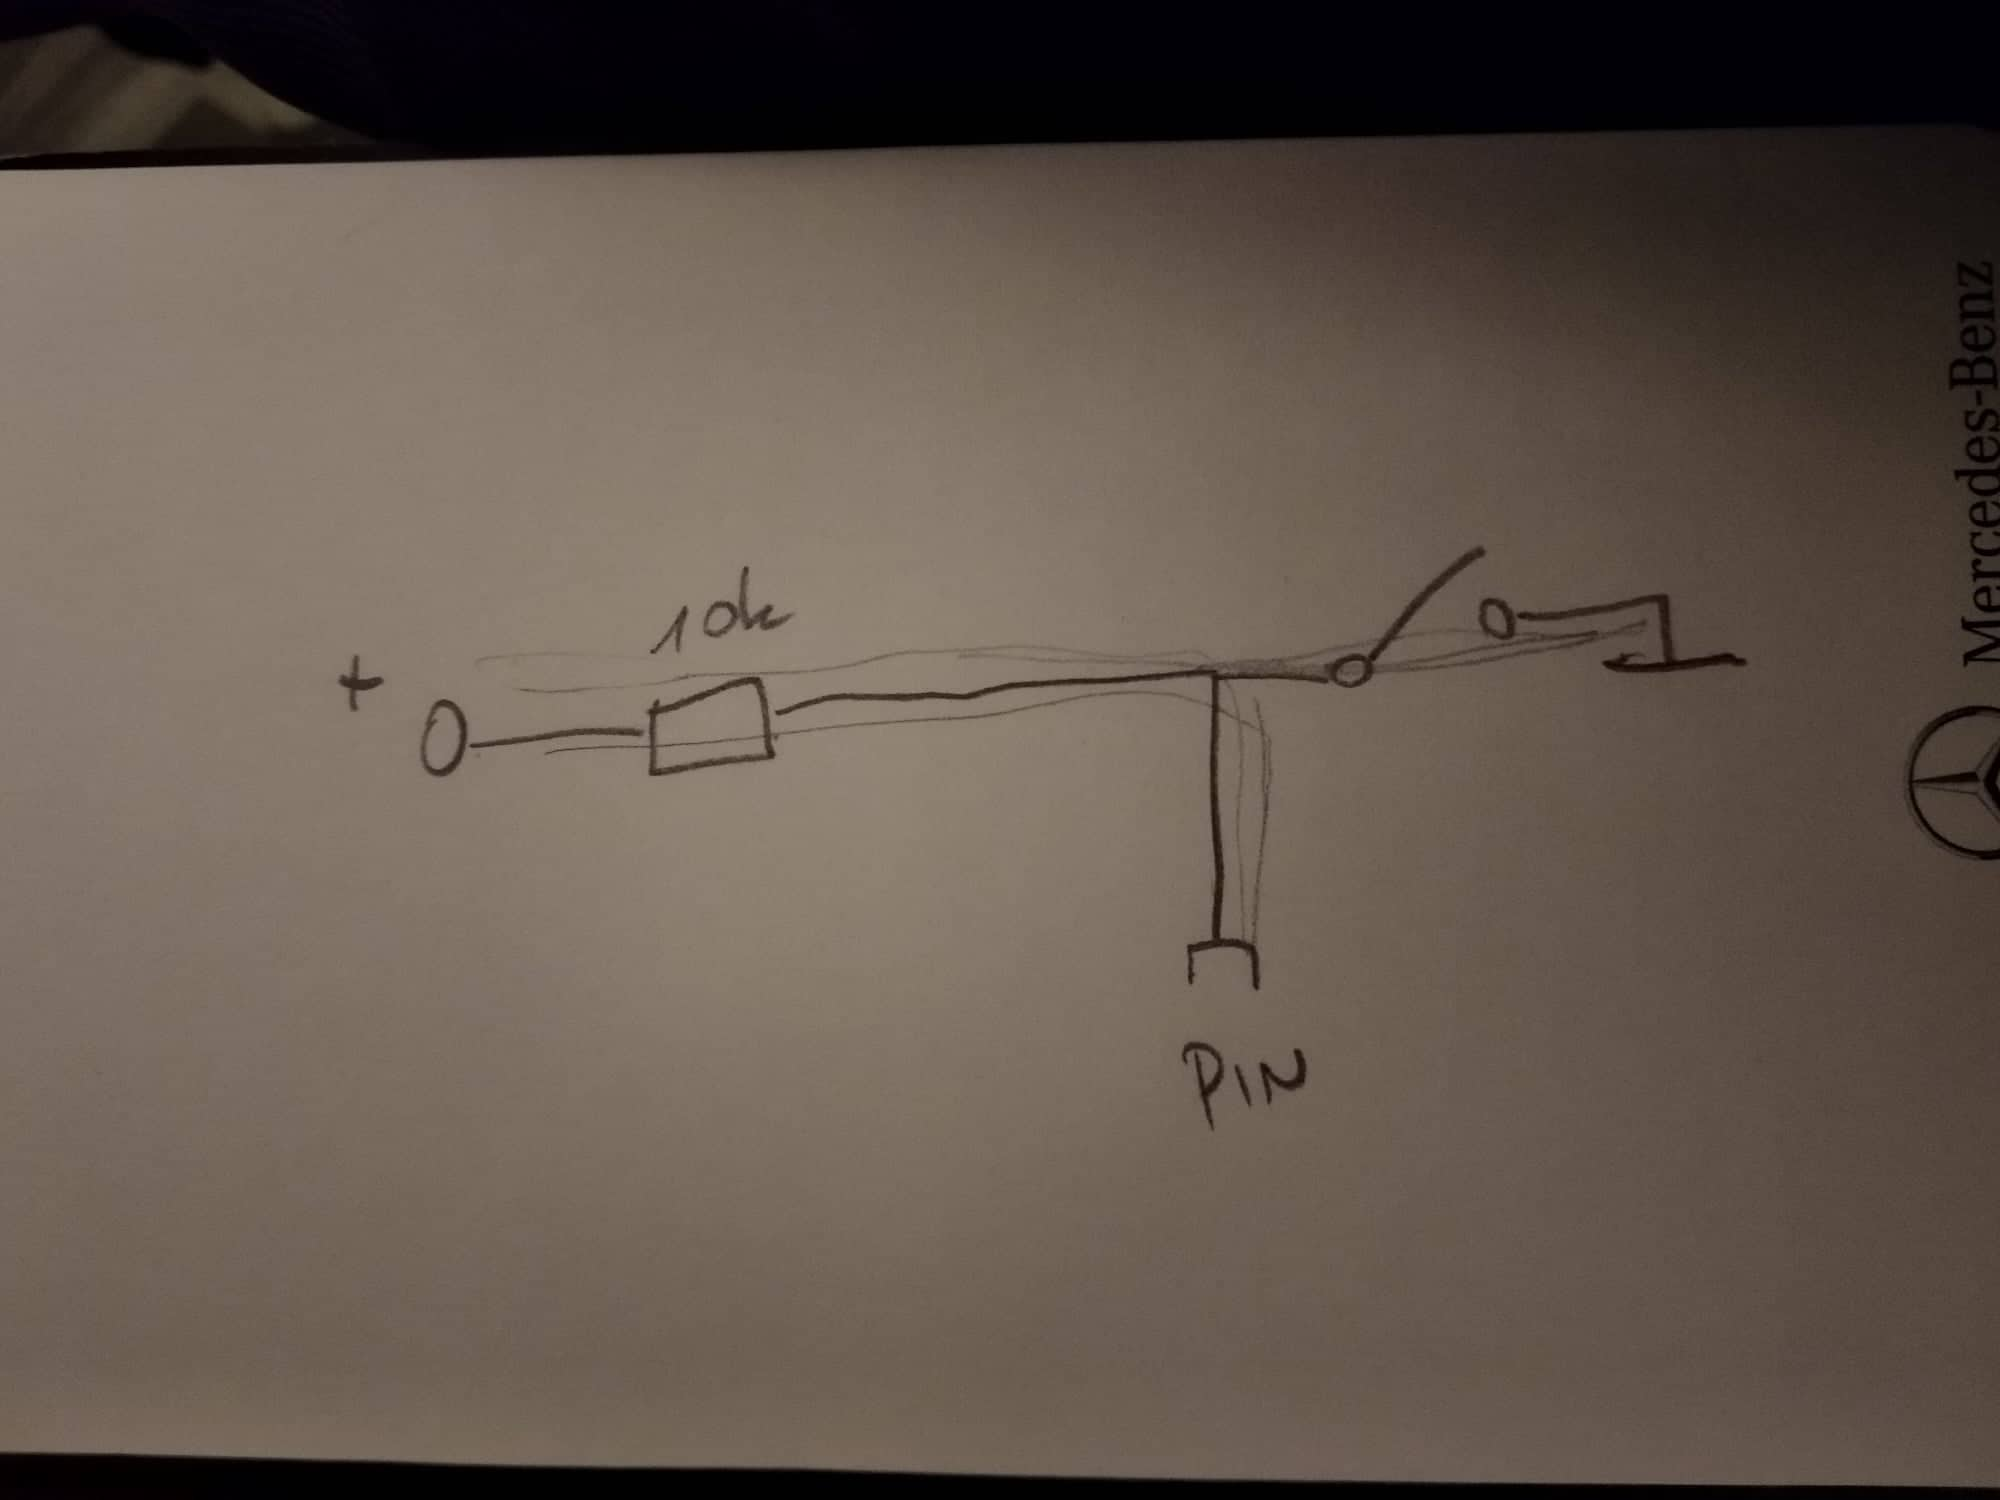 10k
+
PIN
Mercedes-Benz